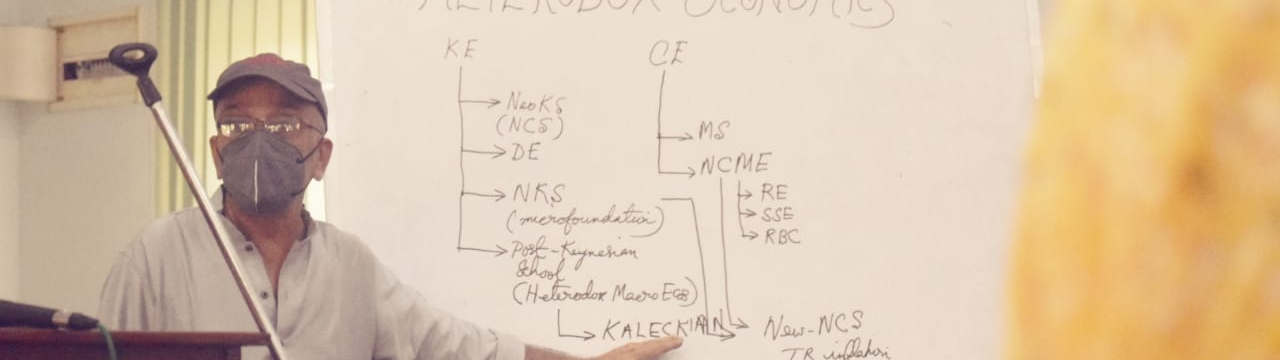 HETERODOX ECONOMICS
KE
CE
NeoKS
(NCS)
DE
NKS
(microfoundation)
Post-Keynesian
School
(Heterodox Macro Ecs)
KALECKIAN
MS
NCME
RE
SSE
RBC
New-NCS
TR inflation